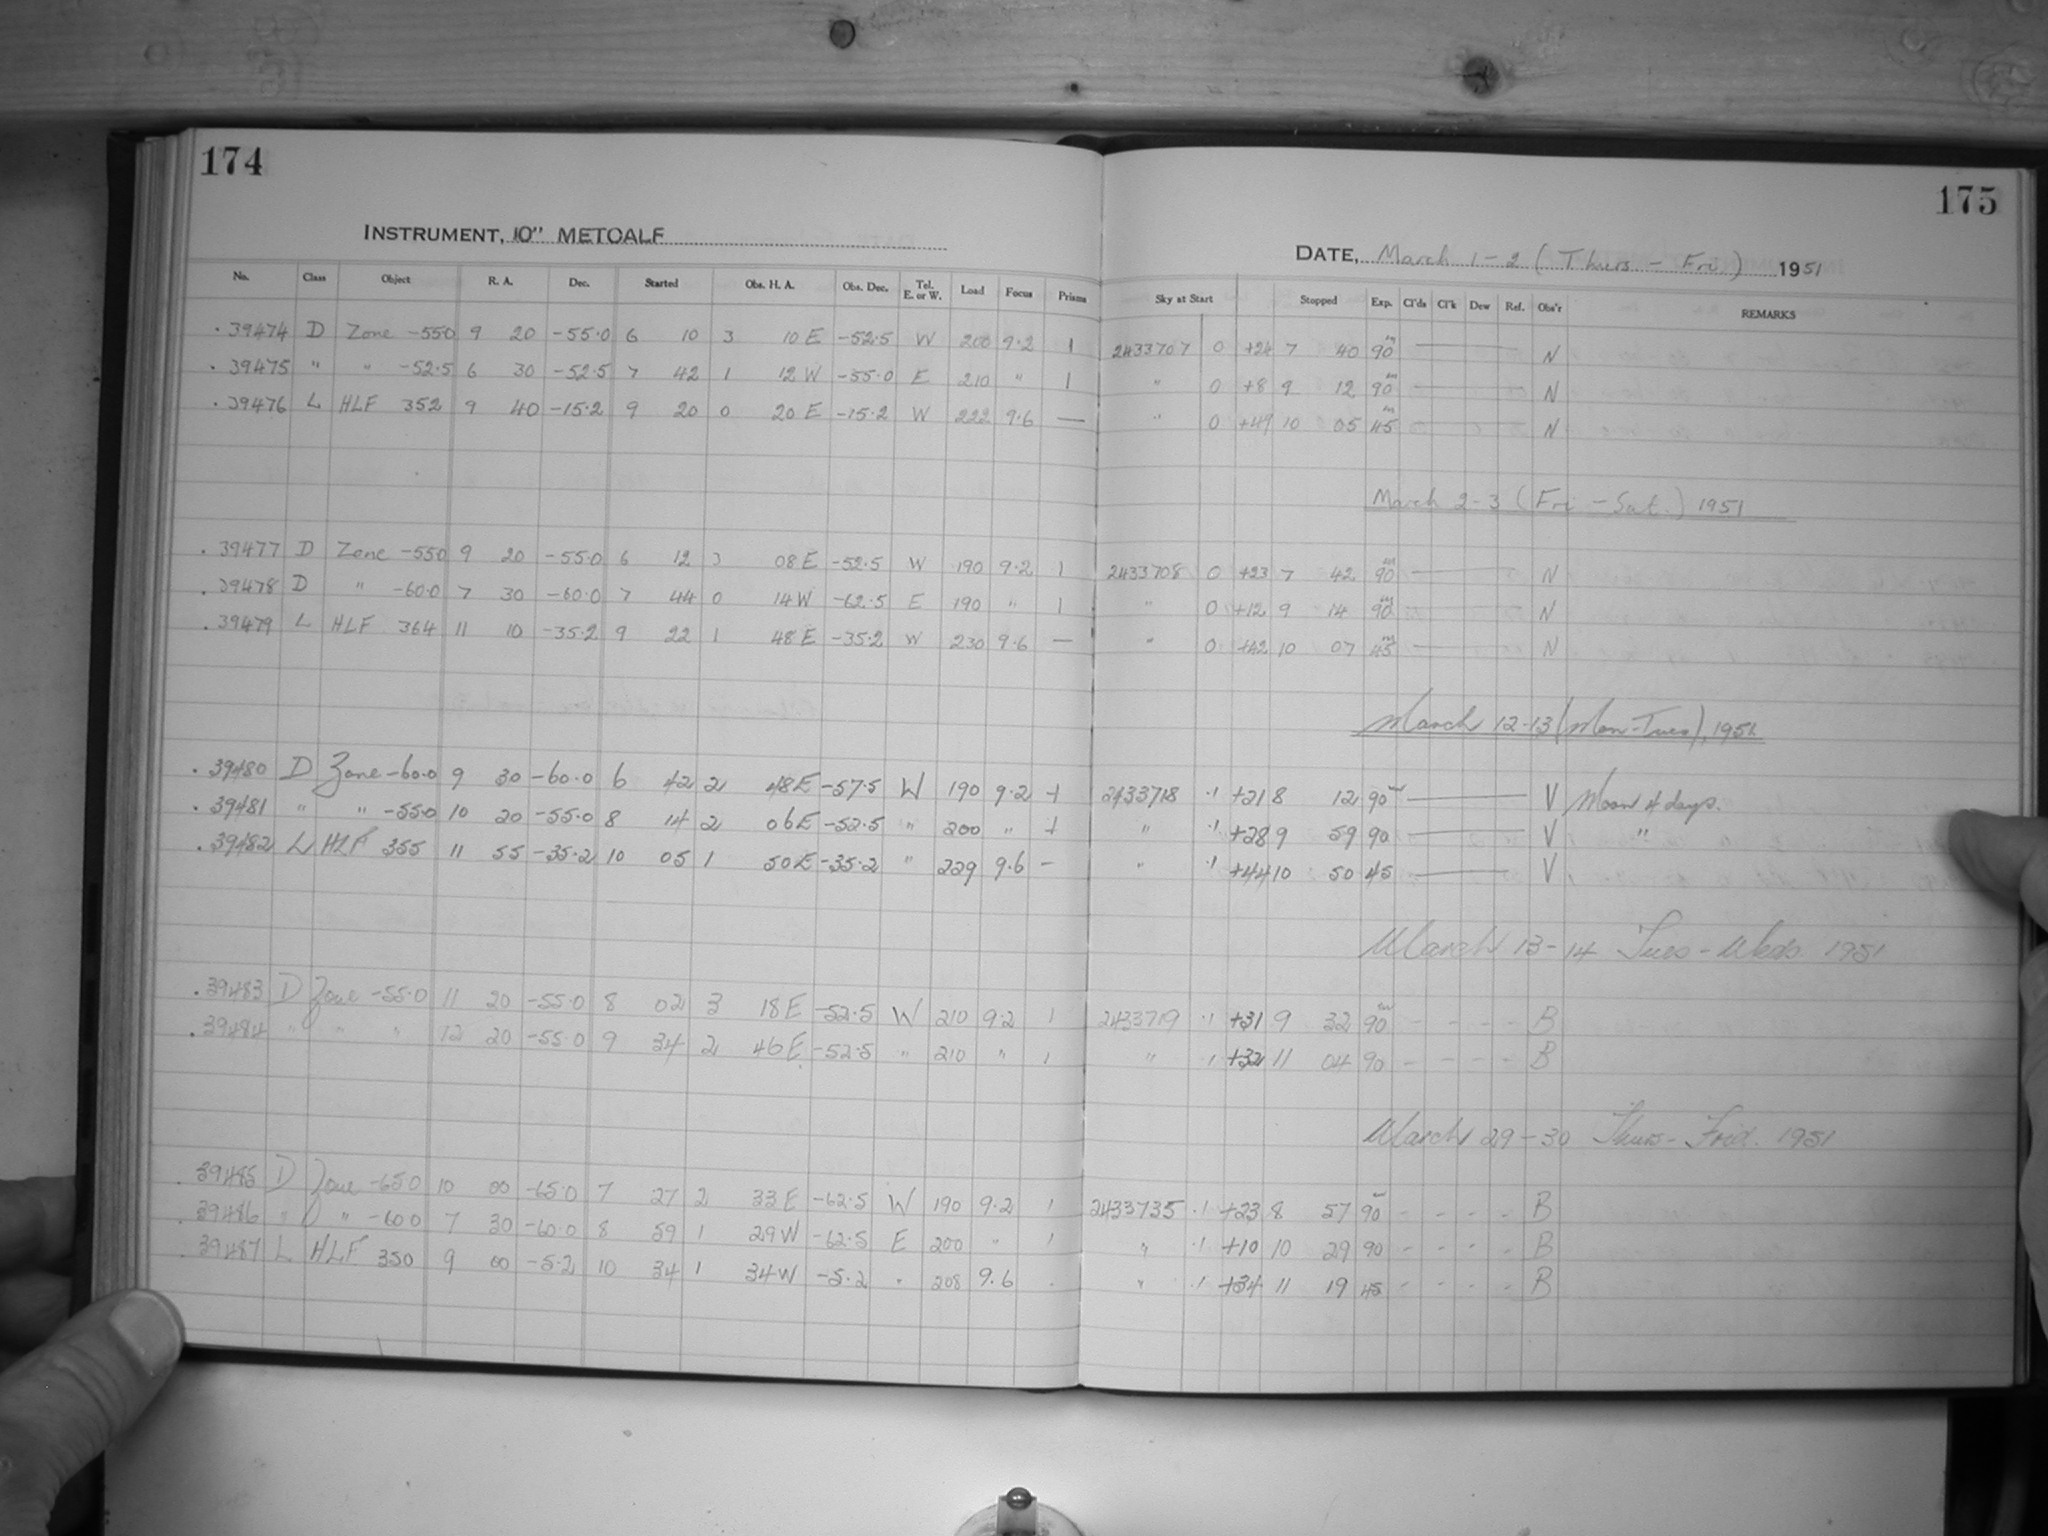 174
175
INSTRUMENT, 10" METCALF
DATE, March 1-2 (Thurs - Fri) 1951
No. Class Object R. A. Dec. Started Obs. H. A. Obs. Dec. Tel. E. or W. Load Focus Prisms Sky at Start Stopped Exp. Cl'ds Cl'k Dew Ref. Obs'r REMARKS
. 39474 D Zone -550 9 20 -55.0 6 10 3 10 E -52.5 W 200 9.2 1 2433707 0 +24 7 40 90m — N
. 39475 " " -52.5 6 30 -52.5 7 42 1 12 W -55.0 E 210 " 1 " 0 +8 9 12 90m — N
. 39476 L HLF 352 9 40 -15.2 9 20 0 20 E -15.2 W 222 9.6 — " 0 +49 10 05 45m — N
March 2-3 (Fri - Sat.) 1951
. 39477 D Zone -550 9 20 -55.0 6 12 3 08 E -52.5 W 190 9.2 1 2433708 0 +23 7 42 90m — N
. 39478 D " -60.0 7 30 -60.0 7 44 0 14 W -62.5 E 190 " 1 " 0 +12 9 14 90m — N
. 39479 L HLF 364 11 10 -35.2 9 22 1 48 E -35.2 W 230 9.6 — " 0 +42 10 07 45m — N
March 12-13 (Mon-Tues), 1951
. 39480 D Zone -60.0 9 30 -60.0 6 42 2 48E -57.5 W 190 9.2 1 2433718 .1 +21 8 12 90m — V Moon 4 days.
. 39481 " " -55.0 10 20 -55.0 8 14 2 06E -52.5 " 200 " 1 " .1 +28 9 59 90 — V "
. 39482 L HLF 355 11 55 -35.2 10 05 1 50E -35.2 " 229 9.6 - " .1 +44 10 50 45 — V
March 13-14 Tues - Weds. 1951
. 39483 D Zone -55.0 11 20 -55.0 8 02 3 18E -52.5 W 210 9.2 1 2433719 .1 +31 9 32 90m - - - - B
. 39484 " " " 12 20 -55.0 9 34 2 46E -52.5 " 210 " 1 " .1 +32 11 04 90 - - - - B
March 29-30 Thurs - Frid. 1951
. 39485 D Zone -650 10 00 -65.0 7 27 2 33E -62.5 W 190 9.2 1 2433735 .1 +23 8 57 90m - - - - B
. 39486 " " -600 7 30 -60.0 8 59 1 29W -62.5 E 200 " 1 " .1 +10 10 29 90 - - - - B
39487 L HLF 350 9 00 -5.2 10 34 1 34W -5.2 " 208 9.6 - " .1 +34 11 19 45 - - - - B